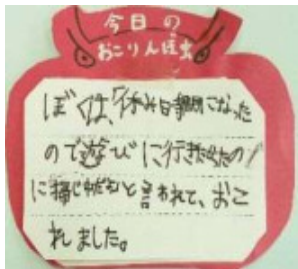 今日の
おこりん坊虫
ぼくは、休み時間になった
ので遊びに行きたかったの
に掃じだと言われて、おこ
れました。